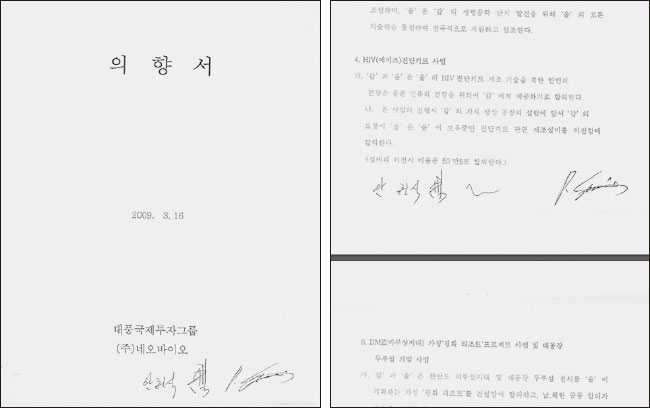 의 향 서
2009. 3.16
대풍국제투자그룹
(주)네오바이오
조성하며, '을' 은 '갑' 의 생명공학 단지 발전을 위해 '을' 의 모든
기술력을 동원하여 전폭적으로 지원하고 협조한다.
4. HIV(에이즈)진단키트 사업
가. '갑' 과 '을' 은 '을' 의 HIV진단키트 제조 기술을 북한 인민의
건강은 물론 인류의 건강을 위하여 '갑' 에게 제공하기로 합의한다.
나. 본 사업의 진행시 '갑' 의 자체 생산 공장의 설립에 앞서 '갑' 의
요청시 '을' 은 '을' 이 보유중인 진단키트 관련 제조설비를 이전함에
합의한다.
(설비의 이전시 비용은 50 만$로 합의한다.)
6. DMZ(비무장지대) 가칭'평화 리조트'프로젝트 사업 및 대동강
두루섬 개발 사업
가. '갑' 과 '을' 은 한반도 비무장지대 및 대동강 두루섬 전체를 '을' 이
기획하는 가칭 '평화 리조트'를 건설함에 합의하고, 남.북한 공동 합의가